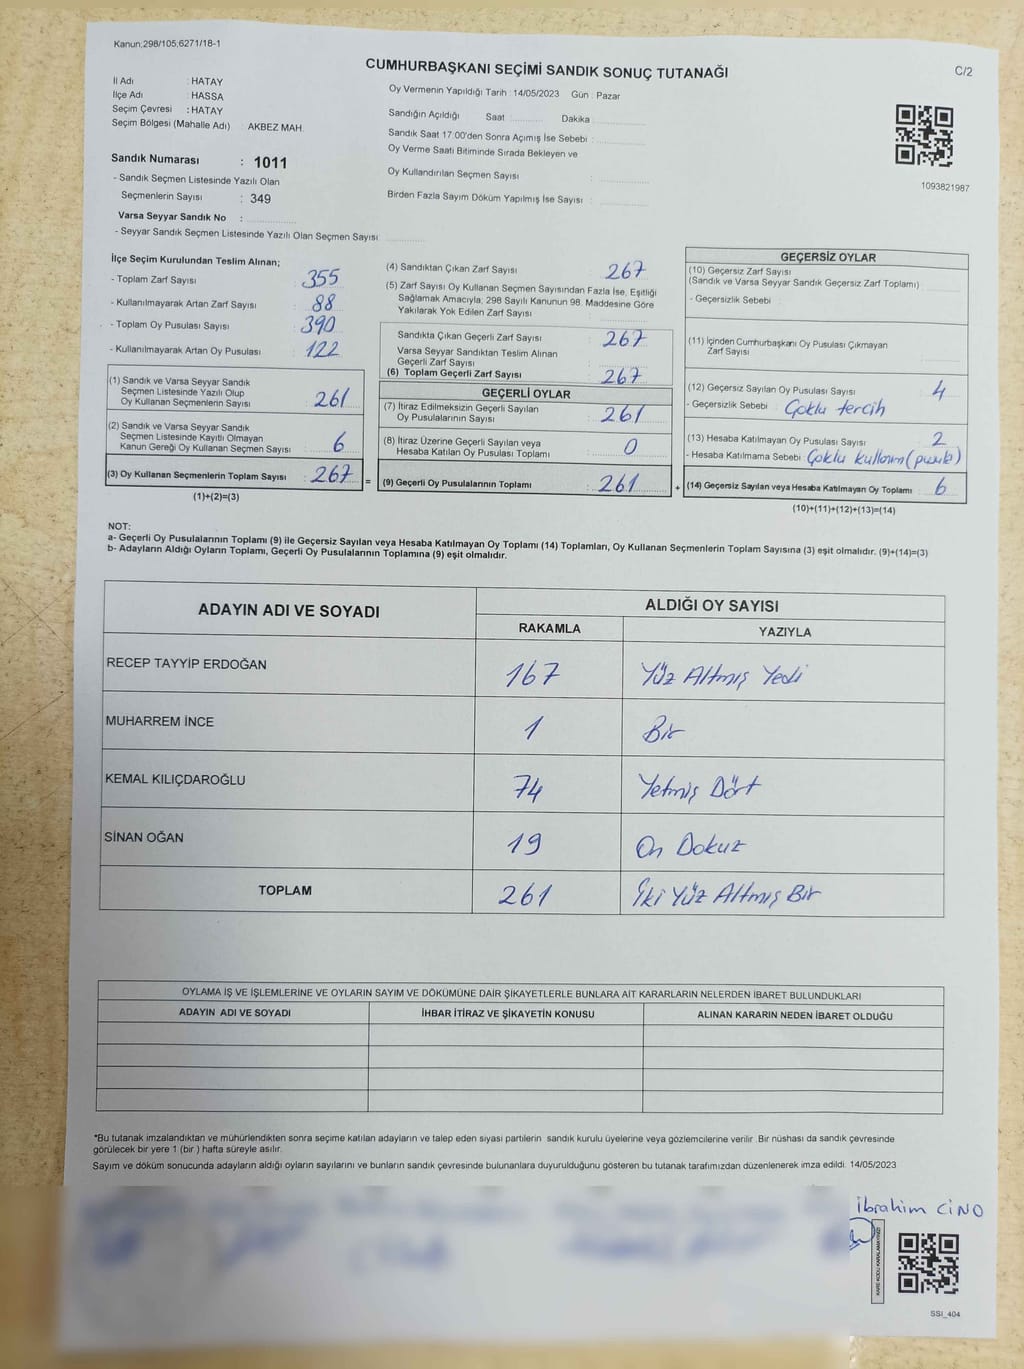 Kanun;298/105;6271/18-1
CUMHURBAŞKANI SEÇİMİ SANDIK SONUÇ TUTANAĞI
C/2
İl Adı : HATAY
İlçe Adı : HASSA
Seçim Çevresi : HATAY
Seçim Bölgesi (Mahalle Adı) : AKBEZ MAH.
Sandık Numarası : 1011
- Sandık Seçmen Listesinde Yazılı Olan
Seçmenlerin Sayısı : 349
Varsa Seyyar Sandık No :
- Seyyar Sandık Seçmen Listesinde Yazılı Olan Seçmen Sayısı
Oy Vermenin Yapıldığı Tarih : 14/05/2023 Gün : Pazar
Sandığın Açıldığı Saat : Dakika :
Sandık Saat 17:00'den Sonra Açımış İse Sebebi :
Oy Verme Saati Bitiminde Sırada Bekleyen ve
Oy Kullandırılan Seçmen Sayısı :
Birden Fazla Sayım Döküm Yapılmış İse Sayısı :
1093821987
İlçe Seçim Kurulundan Teslim Alınan;
- Toplam Zarf Sayısı : 355
- Kullanılmayarak Artan Zarf Sayısı : 88
- Toplam Oy Pusulası Sayısı : 390
- Kullanılmayarak Artan Oy Pusulası : 122
(1) Sandık ve Varsa Seyyar Sandık
Seçmen Listesinde Yazılı Olup
Oy Kullanan Seçmenlerin Sayısı : 261
(2) Sandık ve Varsa Seyyar Sandık
Seçmen Listesinde Kayıtlı Olmayan
Kanun Gereği Oy Kullanan Seçmen Sayısı : 6
(3) Oy Kullanan Seçmenlerin Toplam Sayısı : 267
(1)+(2)=(3)
(4) Sandıktan Çıkan Zarf Sayısı : 267
(5) Zarf Sayısı Oy Kullanan Seçmen Sayısından Fazla İse, Eşitliği
Sağlamak Amacıyla, 298 Sayılı Kanunun 98. Maddesine Göre
Yakılarak Yok Edilen Zarf Sayısı :
Sandıkta Çıkan Geçerli Zarf Sayısı : 267
Varsa Seyyar Sandıktan Teslim Alınan
Geçerli Zarf Sayısı :
(6) Toplam Geçerli Zarf Sayısı : 267
GEÇERLİ OYLAR
(7) İtiraz Edilmeksizin Geçerli Sayılan
Oy Pusulalarının Sayısı : 261
(8) İtiraz Üzerine Geçerli Sayılan veya
Hesaba Katılan Oy Pusulası Toplamı : 0
= (9) Geçerli Oy Pusulalarının Toplamı : 261
GEÇERSİZ OYLAR
(10) Geçersiz Zarf Sayısı
(Sandık ve Varsa Seyyar Sandık Geçersiz Zarf Toplamı) :
- Geçersizlik Sebebi :
(11) İçinden Cumhurbaşkanı Oy Pusulası Çıkmayan
Zarf Sayısı :
(12) Geçersiz Sayılan Oy Pusulası Sayısı : 4
- Geçersizlik Sebebi : Çoklu tercih
(13) Hesaba Katılmayan Oy Pusulası Sayısı : 2
- Hesaba Katılmama Sebebi : Çoklu
+ (14) Geçersiz Sayılan veya Hesaba Katılmayan Oy Toplamı : 6
(10)+(11)+(12)+(13)=(14)
NOT:
a- Geçerli Oy Pusulalarının Toplamı (9) ile Geçersiz Sayılan veya Hesaba Katılmayan Oy Toplamı (14) Toplamları, Oy Kullanan Seçmenlerin Toplam Sayısına (3) eşit olmalıdır. (9)+(14)=(3)
b- Adayların Aldığı Oyların Toplamı, Geçerli Oy Pusulalarının Toplamına (9) eşit olmalıdır.
ADAYIN ADI VE SOYADI
ALDIĞI OY SAYISI
RAKAMLA YAZIYLA
RECEP TAYYİP ERDOĞAN 167 Yüz Altmış Yedi
MUHARREM İNCE 1 Bir
KEMAL KILIÇDAROĞLU 74 Yetmiş Dört
SİNAN OĞAN 19 On Dokuz
TOPLAM 261 İki Yüz Altmış Bir
OYLAMA İŞ VE İŞLEMLERİNE VE OYLARIN SAYIM VE DÖKÜMÜNE DAİR ŞİKAYETLERLE BUNLARA AİT KARARLARIN NELERDEN İBARET BULUNDUKLARI
ADAYIN ADI VE SOYADI İHBAR İTİRAZ VE ŞİKAYETİN KONUSU ALINAN KARARIN NEDEN İBARET OLDUĞU
*Bu tutanak imzalandıktan ve mühürlendikten sonra seçime katılan adayların ve talep eden siyasi partilerin sandık kurulu üyelerine veya gözlemcilerine verilir. Bir nüshası da sandık çevresinde
görülecek bir yere 1 (bir ) hafta süreyle asılır.
Sayım ve döküm sonucunda adayların aldığı oyların sayılarını ve bunların sandık çevresinde bulunanlara duyurulduğunu gösteren bu tutanak tarafımızdan düzenlenerek imza edildi. 14/05/2023
İbrahim CİNO
KARE KODU KARALAMAYINIZ!
SSI_404